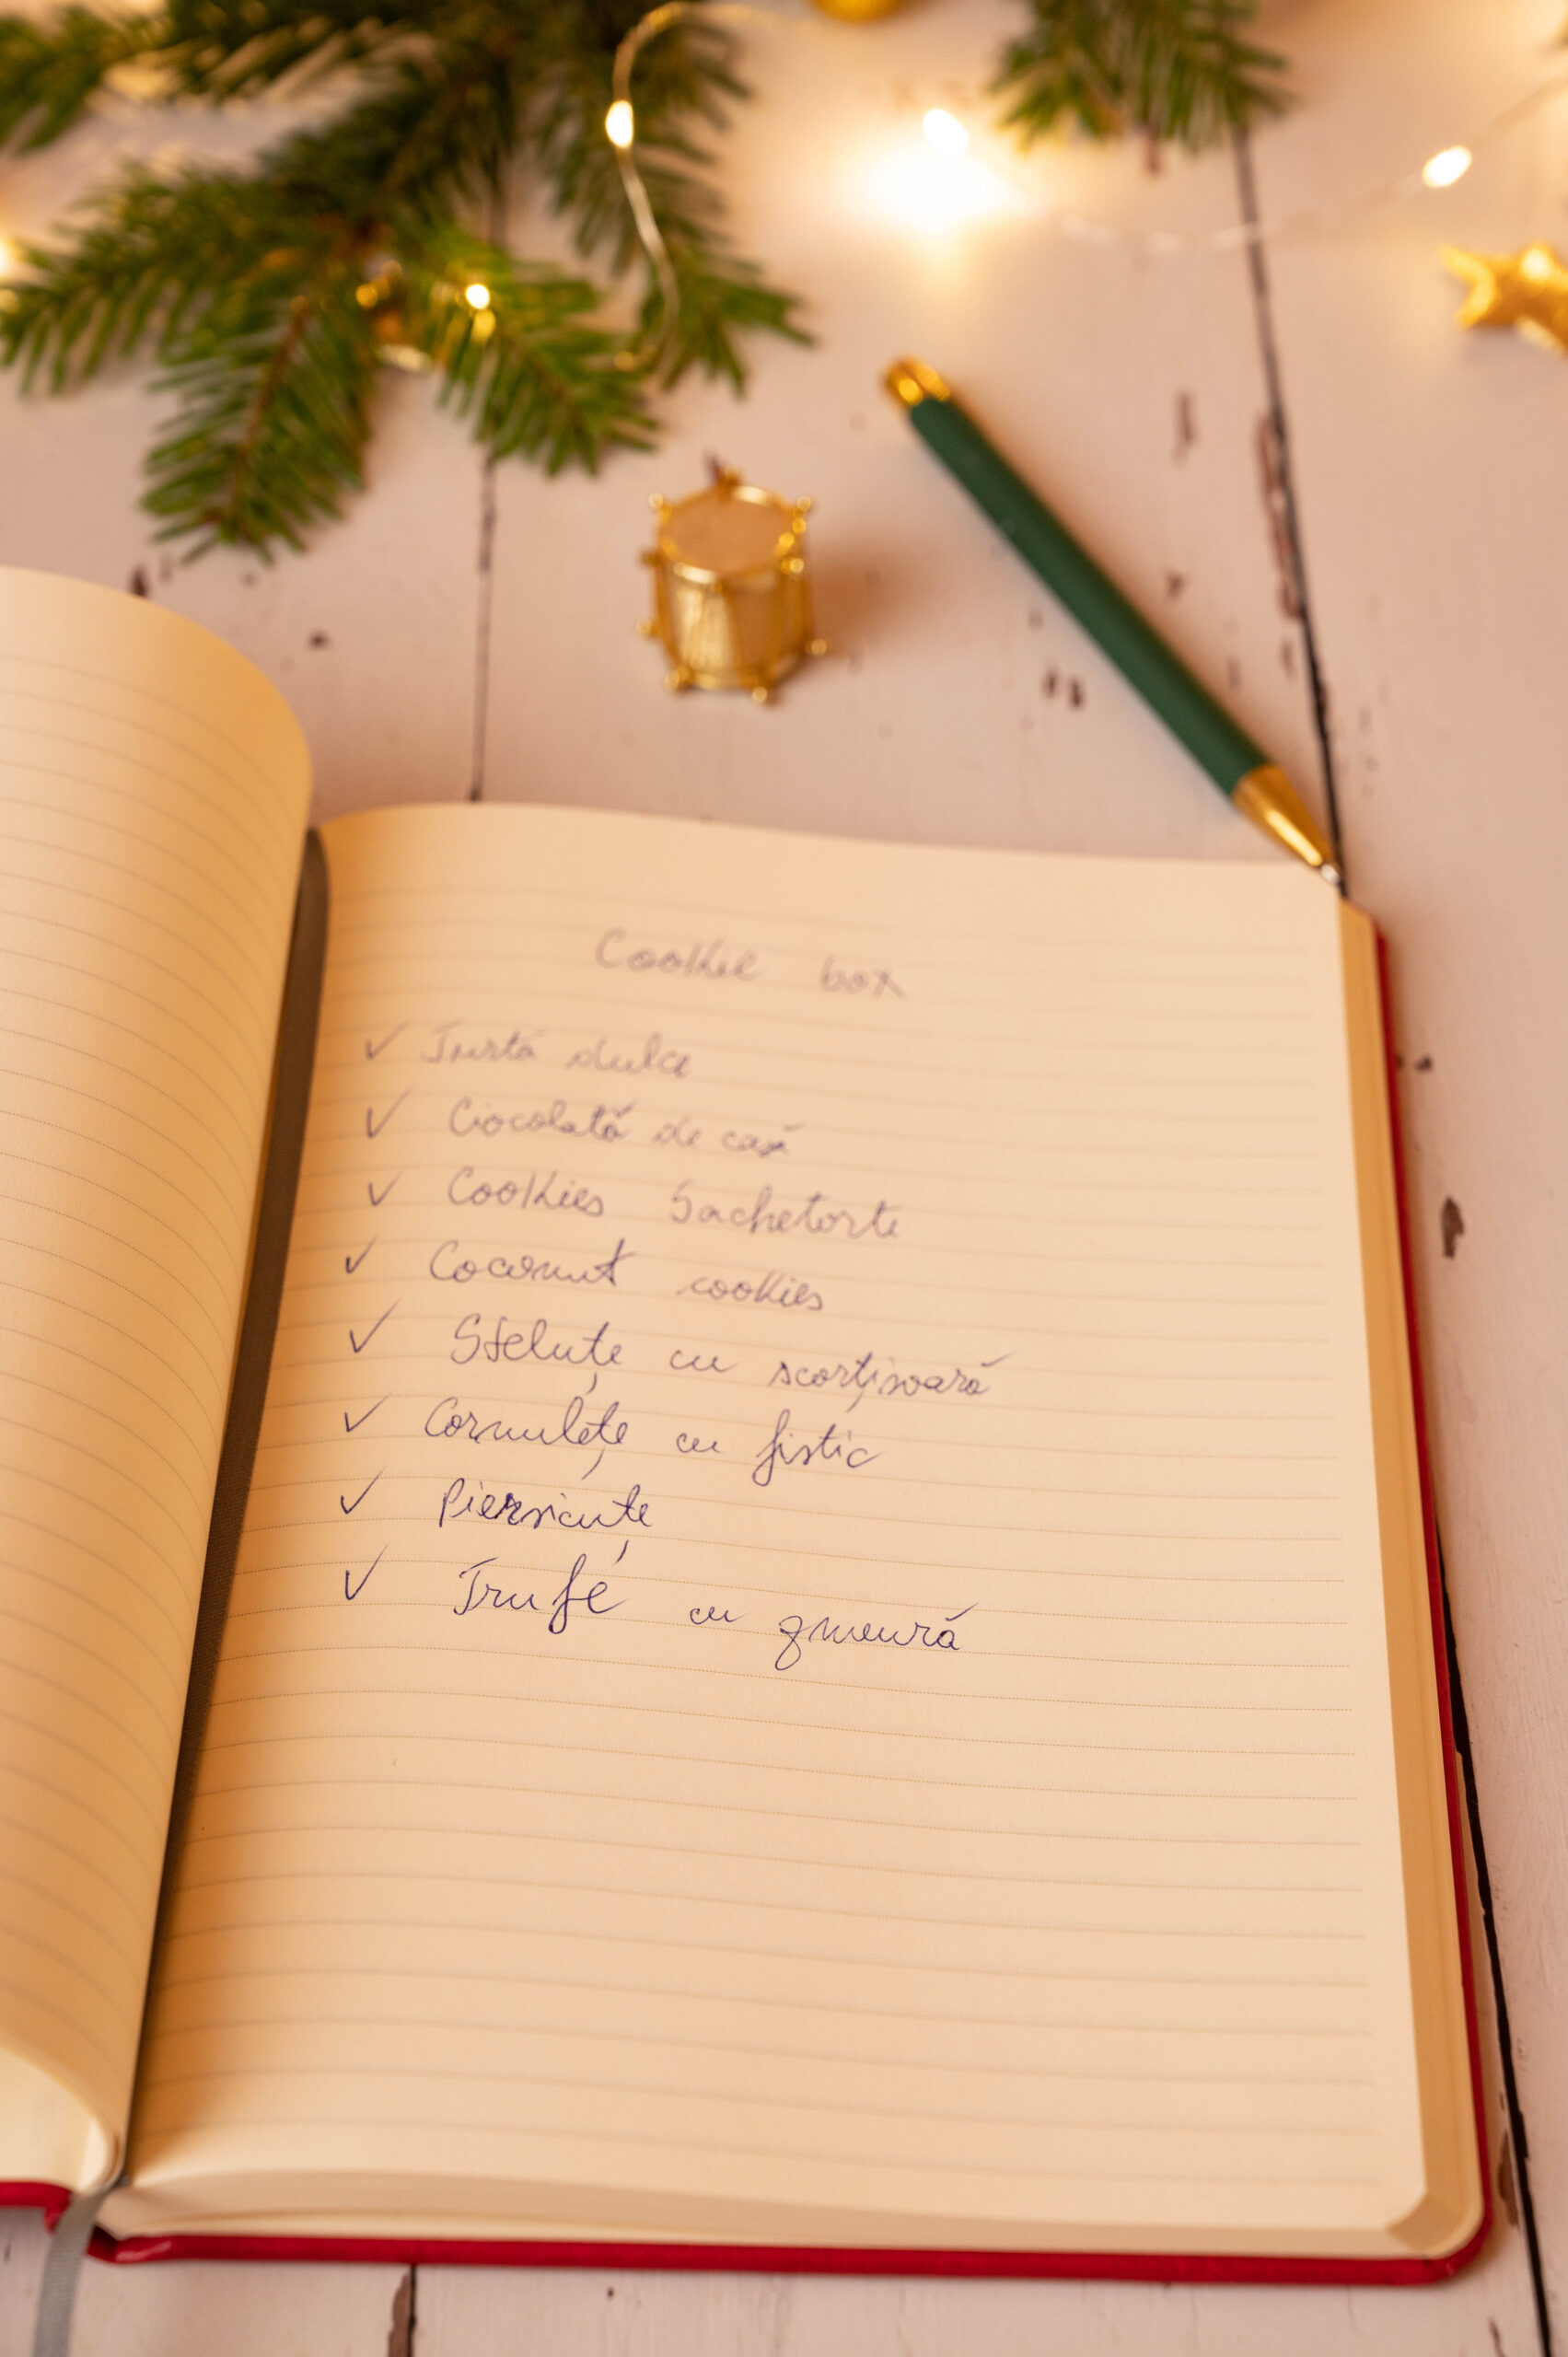 Cookie box
✓ Turtă dulce
✓ Ciocolată de casă
✓ Cookies Sachetorte
✓ Coconut cookies
✓ Steluțe cu scorțișoară
✓ Cornulețe cu fistic
✓ Piersicuțe
✓ Trufe cu zmeură